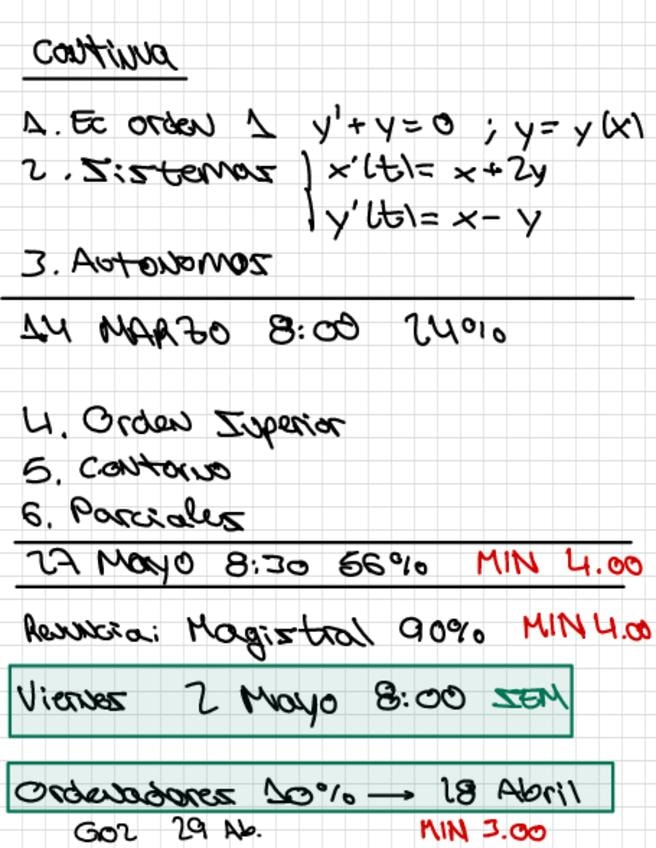 Continua
1. Ec orden 1 y' + y = 0 ; y = y(x)
2. Sistemas { x'(t) = x + 2y
y'(t) = x - y
3. Autonomos
14 MARZO 8:00 24%
4. Orden Superior
5. Contorno
6. Parciales
27 Mayo 8:30 66% MIN 4.00
Renuncia: Magistral 90% MIN 4.00
Viernes 2 Mayo 8:00 SEM
Ordenadores 10% → 28 Abril
G02 29 Ab. MIN 3.00